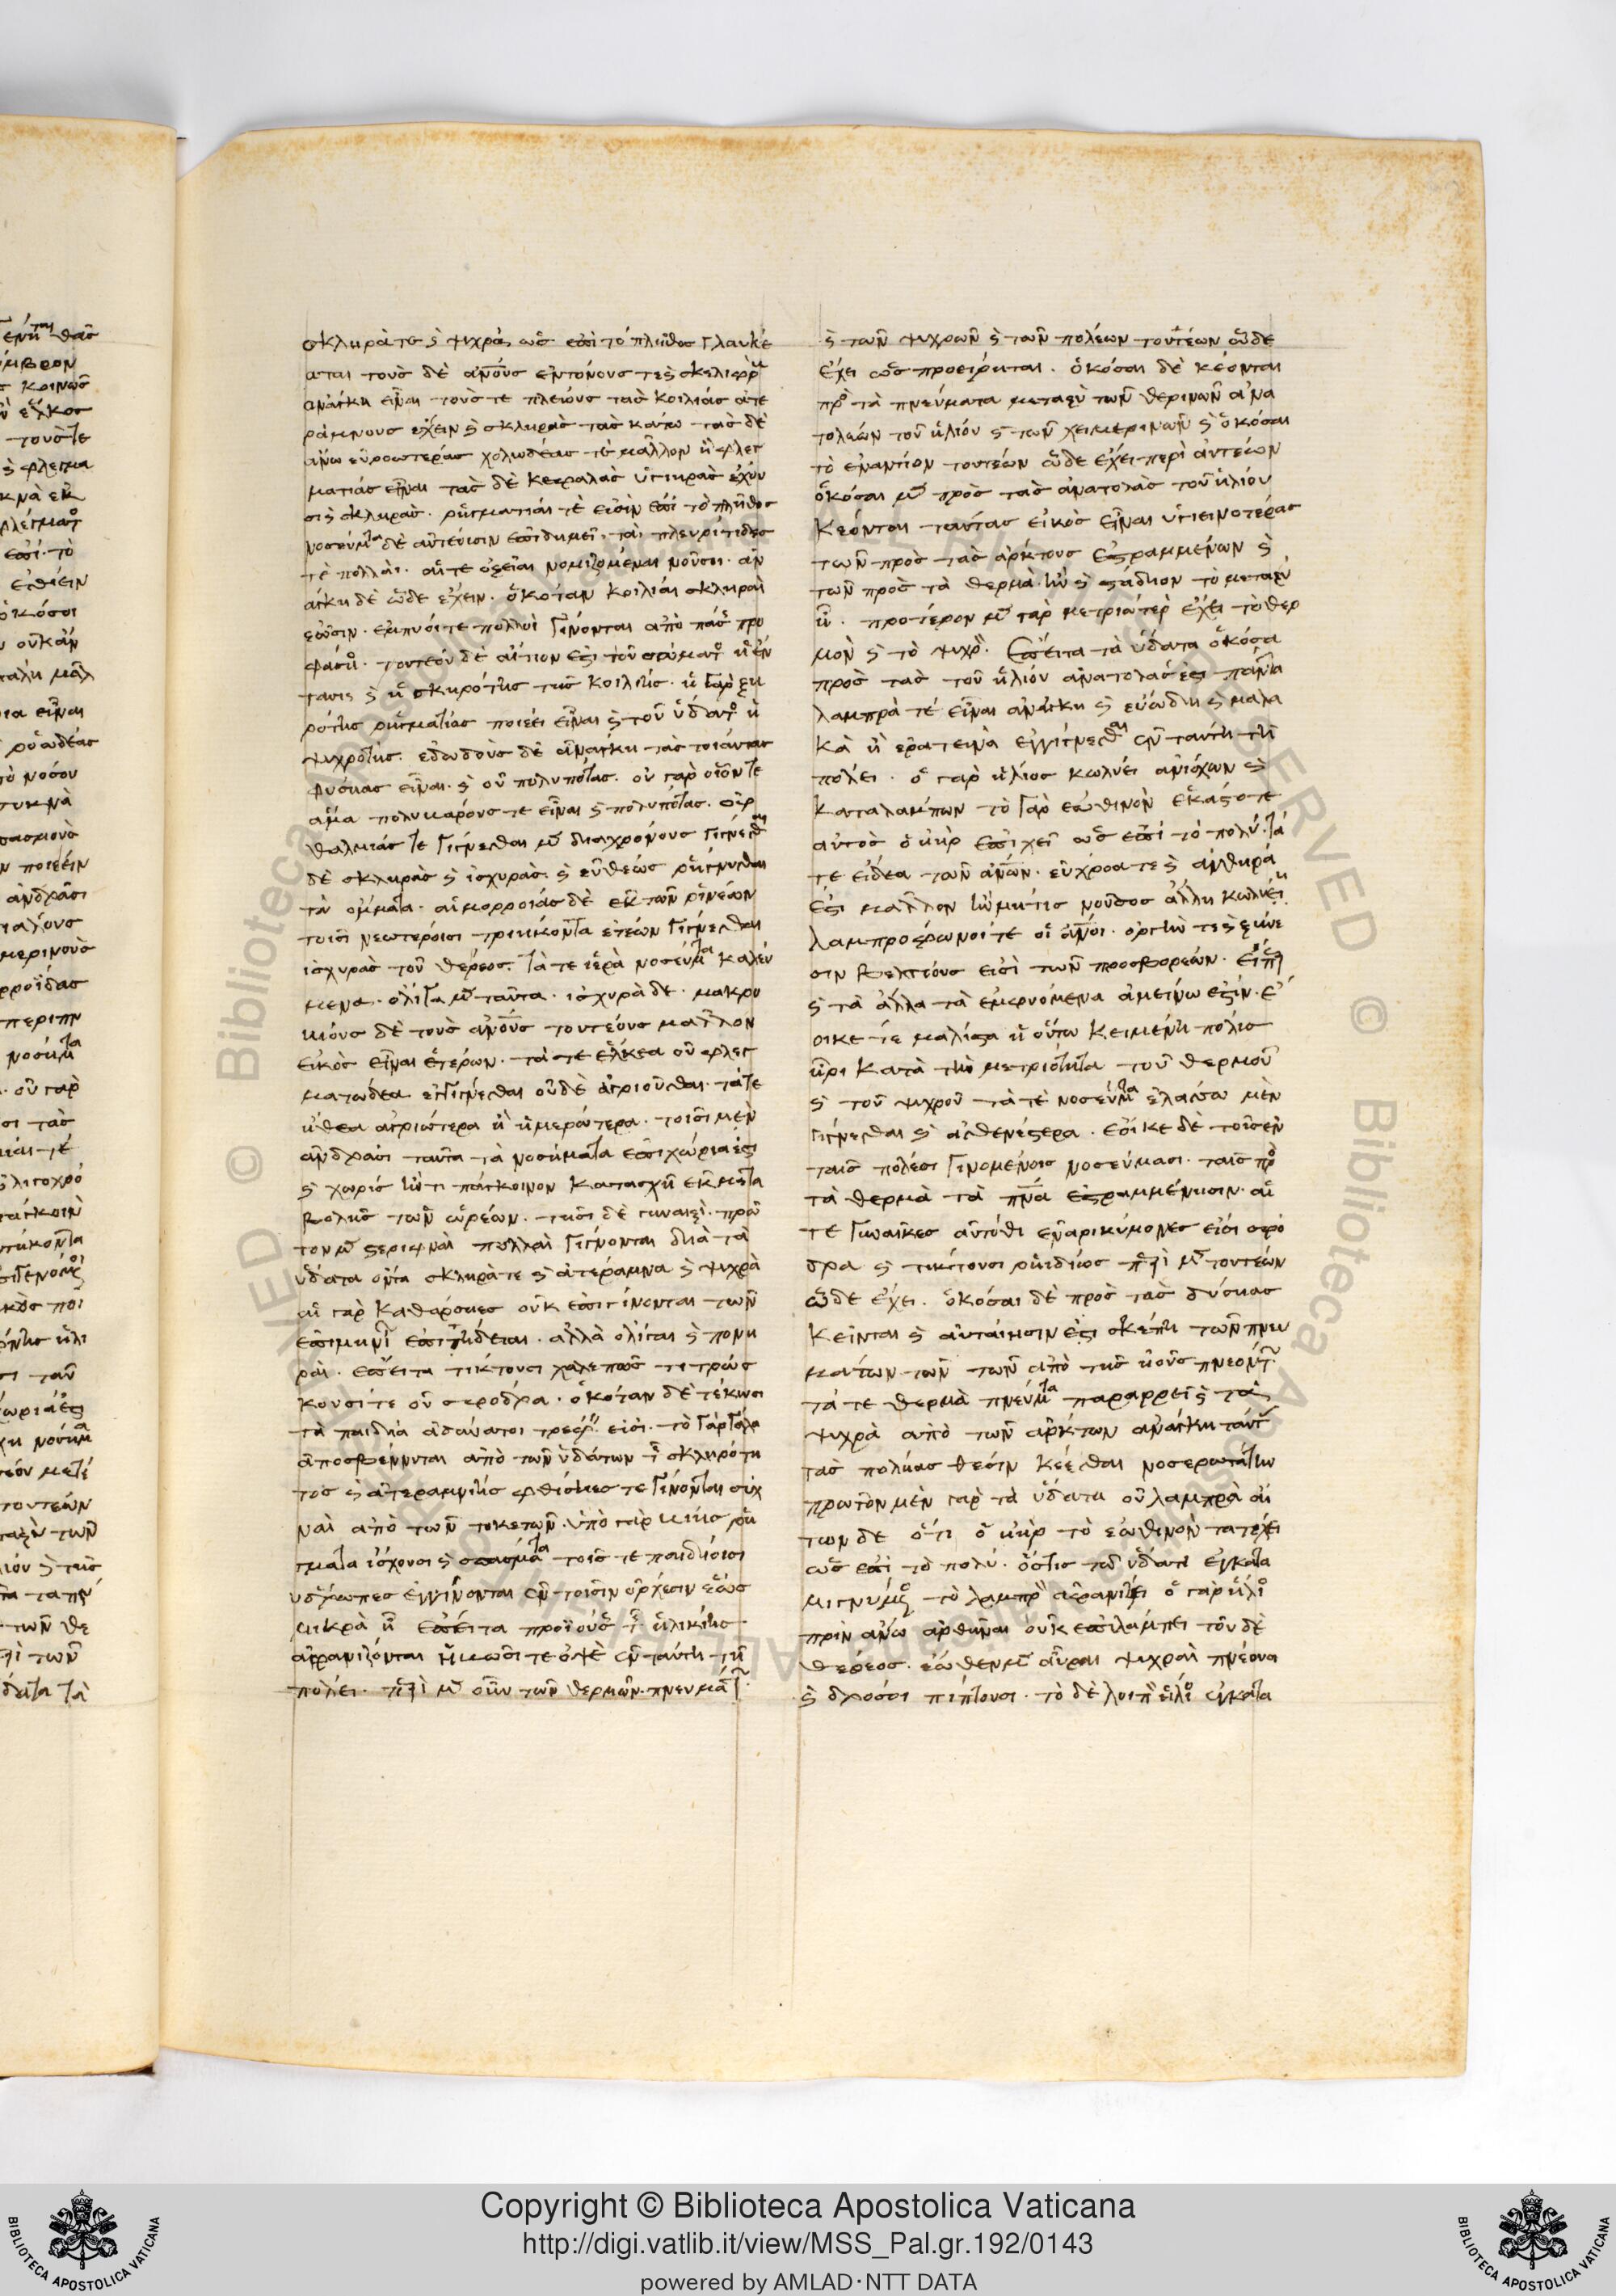 σκληρά τε ϗ ψυχρὰ ὡς ἐπὶ τὸ πλῆθος γλυκέ
αται τοὺς δὲ ἀνους ἐντόνους τε ϗ σκελιφρ
ἀνάγκη εἶναι τούς τε πλείους τὰς κοιλίας ἀτε
ράμνους ἔχειν ϗ σκληρὰς τὰς κάτω τὰς δὲ
ἄνω εὐροωτέρας χολώδεάς τε μᾶλλον ἢ φλεγ
ματίας εἶναι τὰς δὲ κεφαλὰς ὑγιηρὰς ἔχου
σι ϗ σκληράς. ῥηγματίαι τέ εἰσὶν ἐπὶ τὸ πλῆθος
νοσεύμτα δὲ αὐτέοισιν ἐπιδημεῖ. τά πλευρίτιδες
τε πολλαὶ. αἵ τε ὀξεῖαι νομιζόμεναι νοῦσοι. ἀν
άγκη δὲ ὧδε ἔχειν. ὁκόταν κοιλίαι σκληραὶ
ἐῶσιν. ἔμπυοί τε πολλοὶ γίνονται ἀπὸ πάσ προ
φάσιο. τουτέου δὲ αἴτιον ἐστι τοῦ σώματο ἡ ἔν
τασις ϗ ἡ σκληρότης τῆς κοιλίης. ἡ γὰρ ξη
ρότης ῥηγματίας ποιέει εἶναι ϗ τοῦ ὕδατο ἡ
ψυχρότης. ἐδωδοὺς δὲ ἀνάγκη τὰς τοιαύτας
φύσιας εἶναι. ϗ οὐ πολυπότας. οὐ γὰρ οἷόν τε
ἅμα πολυβόρους τε εἶναι ϗ πολυπότας. ὀφ
θαλμίας τε γίγνεσθαι μ διαχρόνους γίγνεσθαι
δὲ σκληρὰς ϗ ἰσχυράς. ϗ εὐθέως ῥήγνυσθαι
τὰ ὄμματα. αἱμορροίας δὲ ἐκ τῶν ῥινέων
τοισι νεωτέροισι τριηκοντα ἐτέων γίγνεσθαι
ἰσχυρὰς τοῦ θέρεος. τά τε ἱερὰ νοσεύμτα καλεύ
μενα. ὀλίγα μ ταῦτα. ἰσχυρὰ δὲ. μακρο
βίους δὲ τοὺς ἀνους τουτέους μᾶλλον
εἰκὸς εἶναι ἑτέρων. τά τε ἕλκεα οὐ φλεγ
ματώδεα ἐγγίγνεσθαι οὐδὲ ἀγριοῦσθαι. τά τε
ἤθεα ἀγριώτερα ἢ ἡμερώτερα. τοισι μὲν
ἀνδράσι ταῦτα τὰ νοσήματα ἐπιχώριά ἐστι
ϗ χωρίς ἤν τι πάγκοινον κατασχῆ ἐκ μετα
βολῆς τῶν ὡρέων. τῆσι δὲ γυναιξὶ. πρῶ
τον μ στεριφναὶ πολλαὶ γίγνονται διὰ τὰ
ὕδατα ὄντα σκληρά τε ϗ ἀτέραμνα ϗ ψυχρὰ
αἱ γὰρ καθάρσιες οὐκ ἐπιγίνονται τῶν
ἐπιμηνι ἐπιτήδειαι. ἀλλὰ ὀλίγαι ϗ πονη
ραὶ. ἔπειτα τίκτουσι χαλεπῶς τιτρώσ
κουσί τε οὐ σφόδρα. ὁκόταν δὲ τέκωσι
τὰ παιδία ἀδύνατοι τρέφ εἰσι. τὸ γὰρ γάλα
ἀποσβέννυται ἀπὸ τῶν ὑδάτων τ σκληρότη
τος ϗ ἀτεραμνίης φθίσιες τε γίνονται συχ
ναὶ ἀπὸ τῶν τοκετῶν. ὑπὸ γὰρ βίης ῥή
γματα ἴσχουσι ϗ σπάσματα τοῖς τε παιδίοισι
ὕδρωπες ἐγγίνονται ἐν τοῖσιν ὄρχεσιν ἕως
μικρὰ ἦ ἔπειτα προϊούσ τ ἡλικίης
ἀφανίζονται ἡβῶσί τε ὀψὲ ἐν ταύτη τῆ
πόλει. περὶ μ οὖν τῶν θερμῶν πνευμάτ
ϗ τῶν ψυχρῶν ϗ τῶν πολέων τουτέων ὧδε
ἔχει ὡς προείρηται. ὁκόσαι δὲ κέονται
πρὸ τὰ πνεύματα μεταξὺ τῶν θερινῶν ἀνα
τολέων τοῦ ἡλίου ϗ τῶν χειμερινῶν ϗ ὁκόσαι
τὸ ἐναντίον τουτέων ὧδε ἔχει περὶ αὐτέων
ὁκόσαι μ πρὸς τὰς ἀνατολὰς τοῦ ἡλίου
κέονται ταύτας εἰκὸς εἶναι ὑγιεινοτέρας
τῶν πρὸς τὰς ἄρκτους ἐστραμμένων ϗ
τῶν πρὸς τὰ θερμὰ ἢν ϗ στάδιον τὸ μεταξὺ
ἦ. πρότερον μ γὰρ μετριώτερ ἔχει τὸ θερ
μὸν ϗ τὸ ψυχρ. Ἔπειτα τὰ ὕδατα ὁκόσα
πρὸς τὰς τοῦ ἡλίου ἀνατολάς ἐστι πάντα
λαμπρά τέ εἶναι ἀνάγκη ϗ εὐώδη ϗ μαλα
κὰ ἢ ἐρατεινὰ ἐγγίγνεσθαι ἐν ταύτη τῆ
πόλει. ὁ γὰρ ἥλιος κωλύει ἀνίσχων ϗ
καταλάμπων τὸ γὰρ ἑωθινὸν ἑκάστοτε
αὐτὸς ὁ ἀὴρ ἐπέχει ὡς ἐπὶ τὸ πολύ. τά
τε εἴδεα τῶν ἀνων. εὔχροά τε ϗ ἀνθηρά
ἐστι μᾶλλον ἢν μή τις νοῦσος ἄλλη κωλύει
λαμπρόφωνοί τε οἱ ἀνοι. ὀργήν τε ϗ ξύνε
σιν βελτίους εἰσὶ τῶν προσβορέων. εἴπερ
ϗ τὰ ἄλλα τὰ ἐμφυόμενα ἀμείνω ἐστίν. ἔ
οικέ τε μάλιστα ἡ οὕτω κειμένη πόλις
ἦρι κατὰ τὴν μετριότητα τοῦ θερμοῦ
ϗ τοῦ ψυχροῦ τά τε νοσεύματα ἐλάσσω μὲν
γίγνεσθαι ϗ ἀσθενέστερα. ἔοικε δὲ τοῖς ἐν
ταῖς πόλεσι γινομένοις νοσεύμασι. ταῖς πρὸ
τὰ θερμὰ τὰ πνά ἐστραμμένησιν. αἵ
τε γυναῖκες αὐτόθι ἐναρικύμονες εἰσι σφό
δρα ϗ τίκτουσι ῥηιδίως περὶ μ τουτέων
ὧδε ἔχει. ὁκόσαι δὲ πρὸς τὰς δύσιας
κεῖνται ϗ αὐτέησιν ἐστι σκέπη τῶν πνευ
μάτων τῶν τῶν ἀπὸ τῆς ἠοῦς πνεόντ
τά τε θερμὰ πνεύματα παραρρεῖ ϗ τὰ
ψυχρὰ ἀπὸ τῶν ἄρκτων ἀνάγκη ταύτ
τὰς πόλιας θέσιν κέεσθαι νοσερωτάτην
πρῶτον μὲν γὰρ τὰ ὕδατα οὐ λαμπρὰ αἴ
τιον δὲ ὅτι ὁ ἀὴρ τὸ ἑωθινὸν κατέχει
ὡς ἐπὶ τὸ πολύ. ὅστις τῶ ὕδατι ἐγκατα
μιγνύμ τὸ λαμπρ ἀφανίζει ὁ γὰρ ἥλι
πρὶν ἄνω ἀρθῆναι οὐκ ἐπιλάμπει τοῦ δὲ
θέρεος. ἕωθεν μ αὖραι ψυχραὶ πνέουσι
ϗ δρόσοι πίπτουσι. τὸ δὲ λοιπ ἥλι ἐγκατα
Copyright © Biblioteca Apostolica Vaticana
http://digi.vatlib.it/view/MSS_Pal.gr.192/0143
powered by AMLAD·NTT DATA